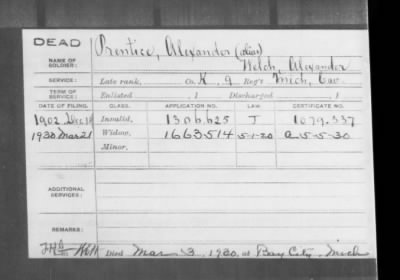 DEAD
Prentice, Alexander (alias)
NAME OF SOLDIER:
Welch, Alexander
SERVICE: Late rank, Co. K, 9 Reg't Mich. Cav.
TERM OF SERVICE: Enlisted , 1 Discharged , 1
DATE OF FILING. CLASS. APPLICATION NO. LAW. CERTIFICATE NO.
1902 Dec Invalid, 1306,625 J 1079.337
1930 Mar 21 Widow, 1663514 5-1-20 a 5-5-30
Minor,
ADDITIONAL SERVICES:
REMARKS:
Died Mar 3, 1930, at Bay City, Mich